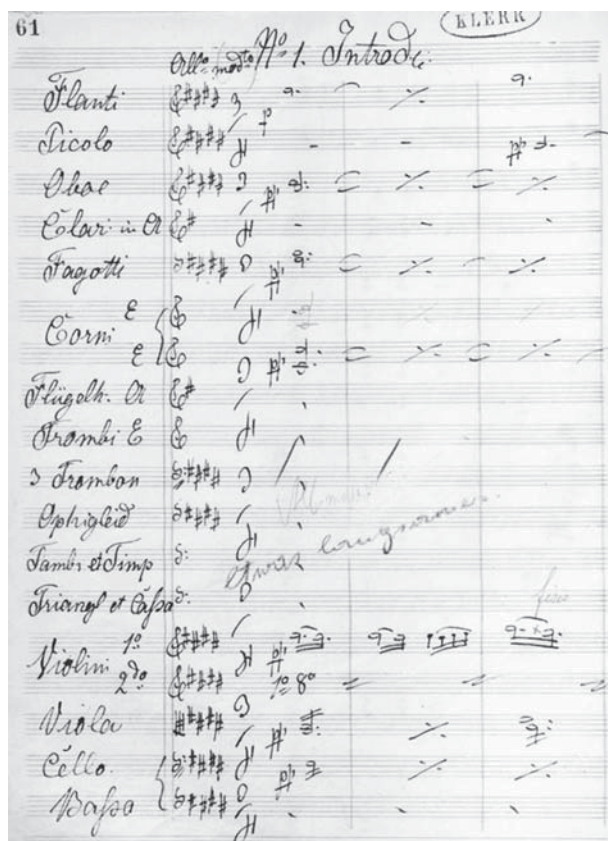 61
KLERR
All.º modto Nº 1. Introd:
Flauti
Picolo
Oboe
Clar: in A
Fagotti
E
Corni
E
Flügelh. A
Trombi E
3 Trombon
Ophigleid
Tambr et Timp
Triangl et Caßa
1º
Violini
2do 1º 8º
Viola
Cello.
Baßo
etwas langsamer.